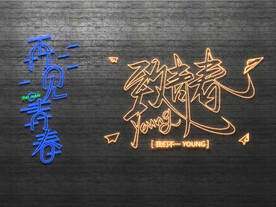 再见
青春
致青春
Young
[ 我们不一 YOUNG ]